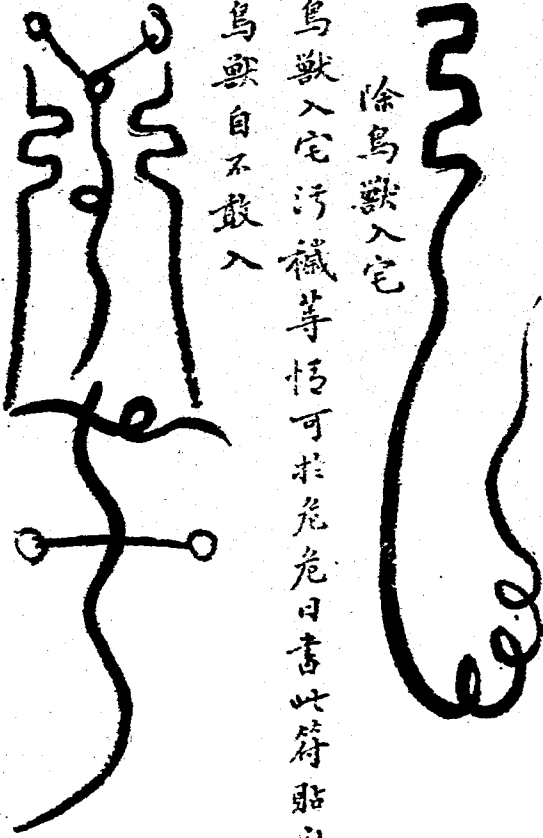 除鳥獸入宅
鳥獸入宅污穢等情可於危危日書此符貼
鳥獸自不敢入